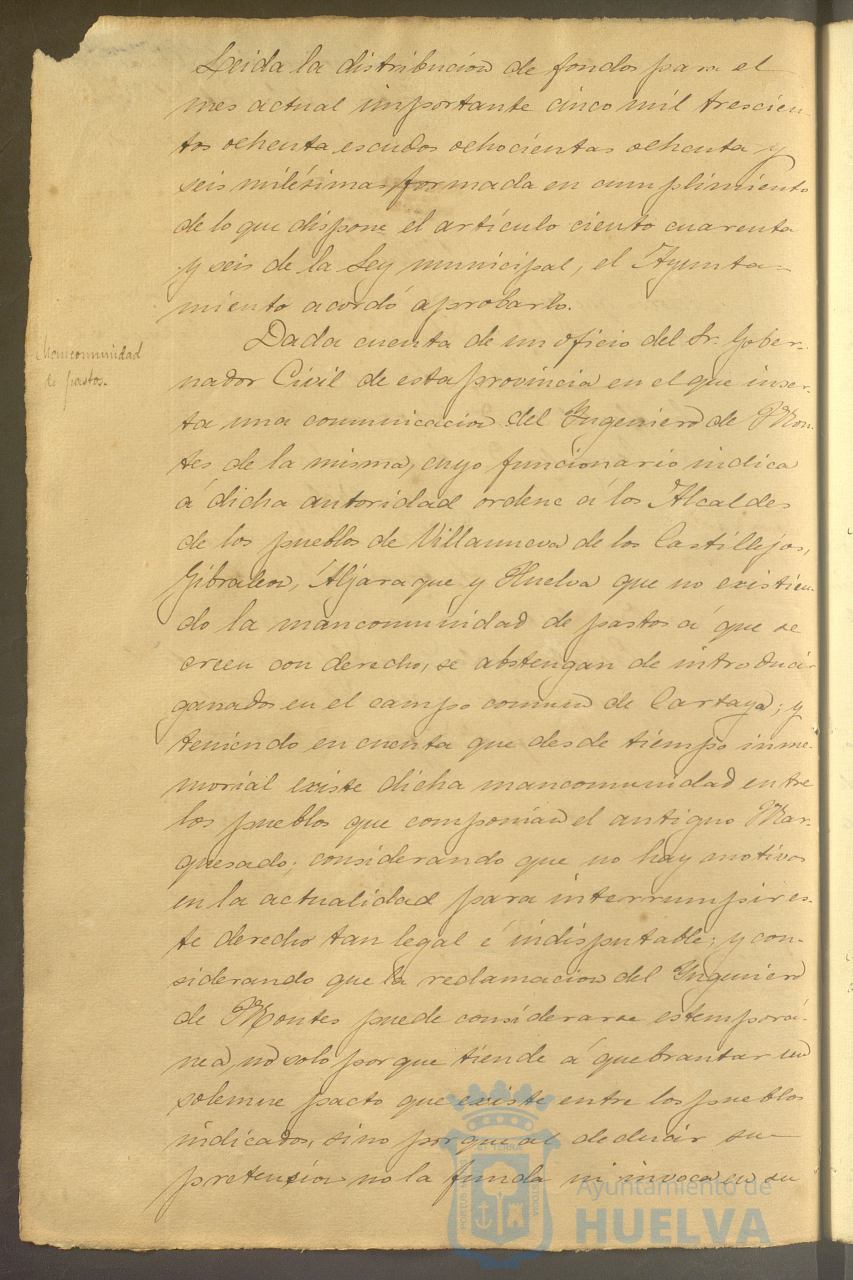 Leida la distribucion de fondos para el
mes actual importante cinco mil trescien-
tos ochenta escudos ochocientas ochenta y
seis milésimas formada en cumplimiento
de lo que dispone el artículo ciento cuarenta
y seis de la Ley municipal, el Ayunta-
miento acordó aprobarlo.
Mancomunidad
de pastos.
Dada cuenta de un oficio del Sr. Gober-
nador Civil de esta provincia en el que inser-
ta una comunicacion del Ingeniero de Mon-
tes de la misma, cuyo funcionario indica
á dicha autoridad ordene á los Alcaldes
de los pueblos de Villanueva de los Castillejos,
Gibraleon, Aljaraque y Huelva que no existien-
do la mancomunidad de pastos á que se
creen con derecho, se abstengan de introducir
ganados en el campo comun de Cartaya; y
teniendo en cuenta que desde tiempo inme-
morial existe dicha mancomunidad entre
los pueblos que componian el antiguo Mar-
quesado; considerando que no hay motivos
en la actualidad para interrumpir es-
te derecho tan legal é indisputable; y con-
siderando que la reclamacion del Ingeniero
de Montes puede considerarse estemporá-
nea, no solo porque tiende á quebrantar un
solemne pacto que existe entre los pueblos
indicados, sino porque al deducir su
pretension no la funda ni invoca en su
PORTUS
ET TERRAE
CUSTODIA
Ayuntamiento de
HUELVA